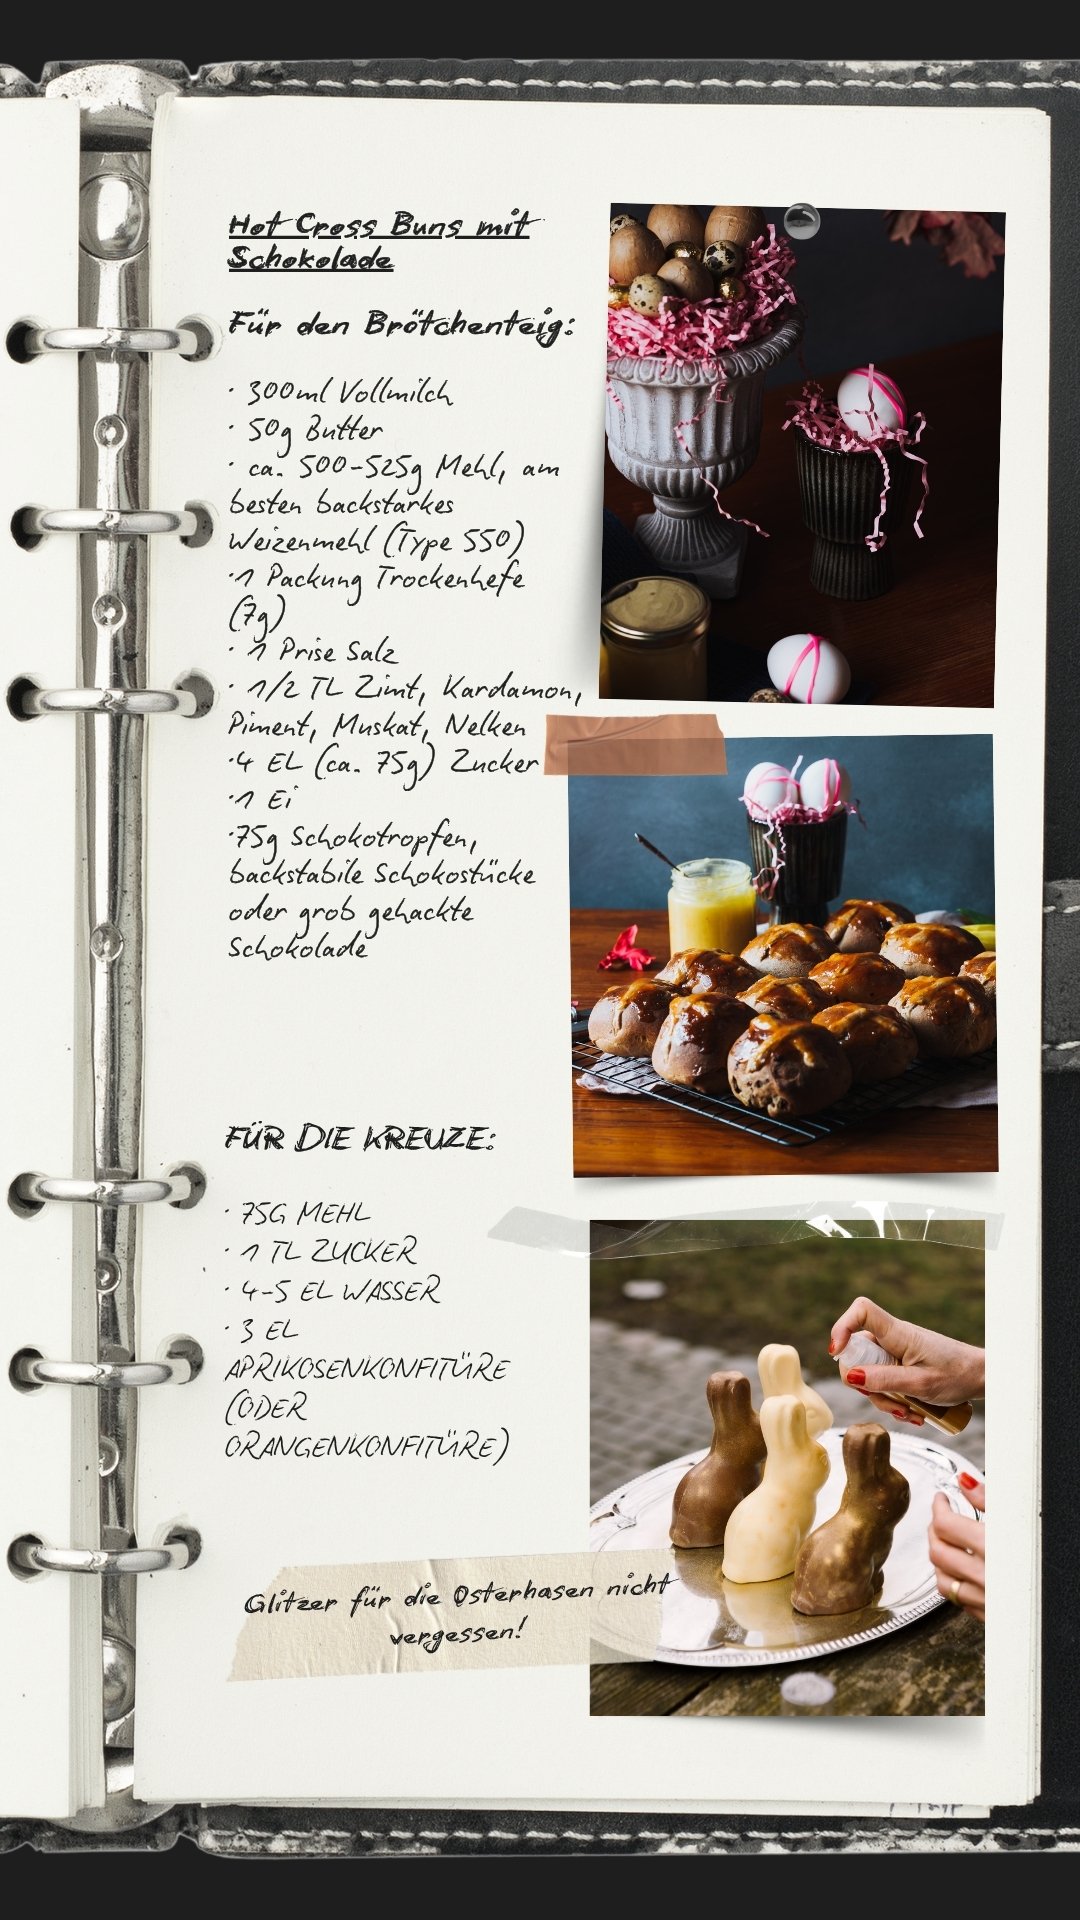 Hot Cross Buns mit
Schokolade
Für den Brötchenteig:
· 300ml Vollmilch
· 50g Butter
· ca. 500-525g Mehl, am
besten backstarkes
Weizenmehl (Type 550)
·1 Packung Trockenhefe
(7g)
· 1 Prise Salz
· 1/2 TL Zimt, Kardamon,
Piment, Muskat, Nelken
·4 EL (ca. 75g) Zucker
·1 Ei
·75g Schokotropfen,
backstabile Schokostücke
oder grob gehackte
Schokolade
FÜR DIE KREUZE:
· 75G MEHL
· 1 TL ZUCKER
· 4-5 EL WASSER
· 3 EL
APRIKOSENKONFITÜRE
(ODER
ORANGENKONFITÜRE)
Glitzer für die Osterhasen nicht
vergessen!